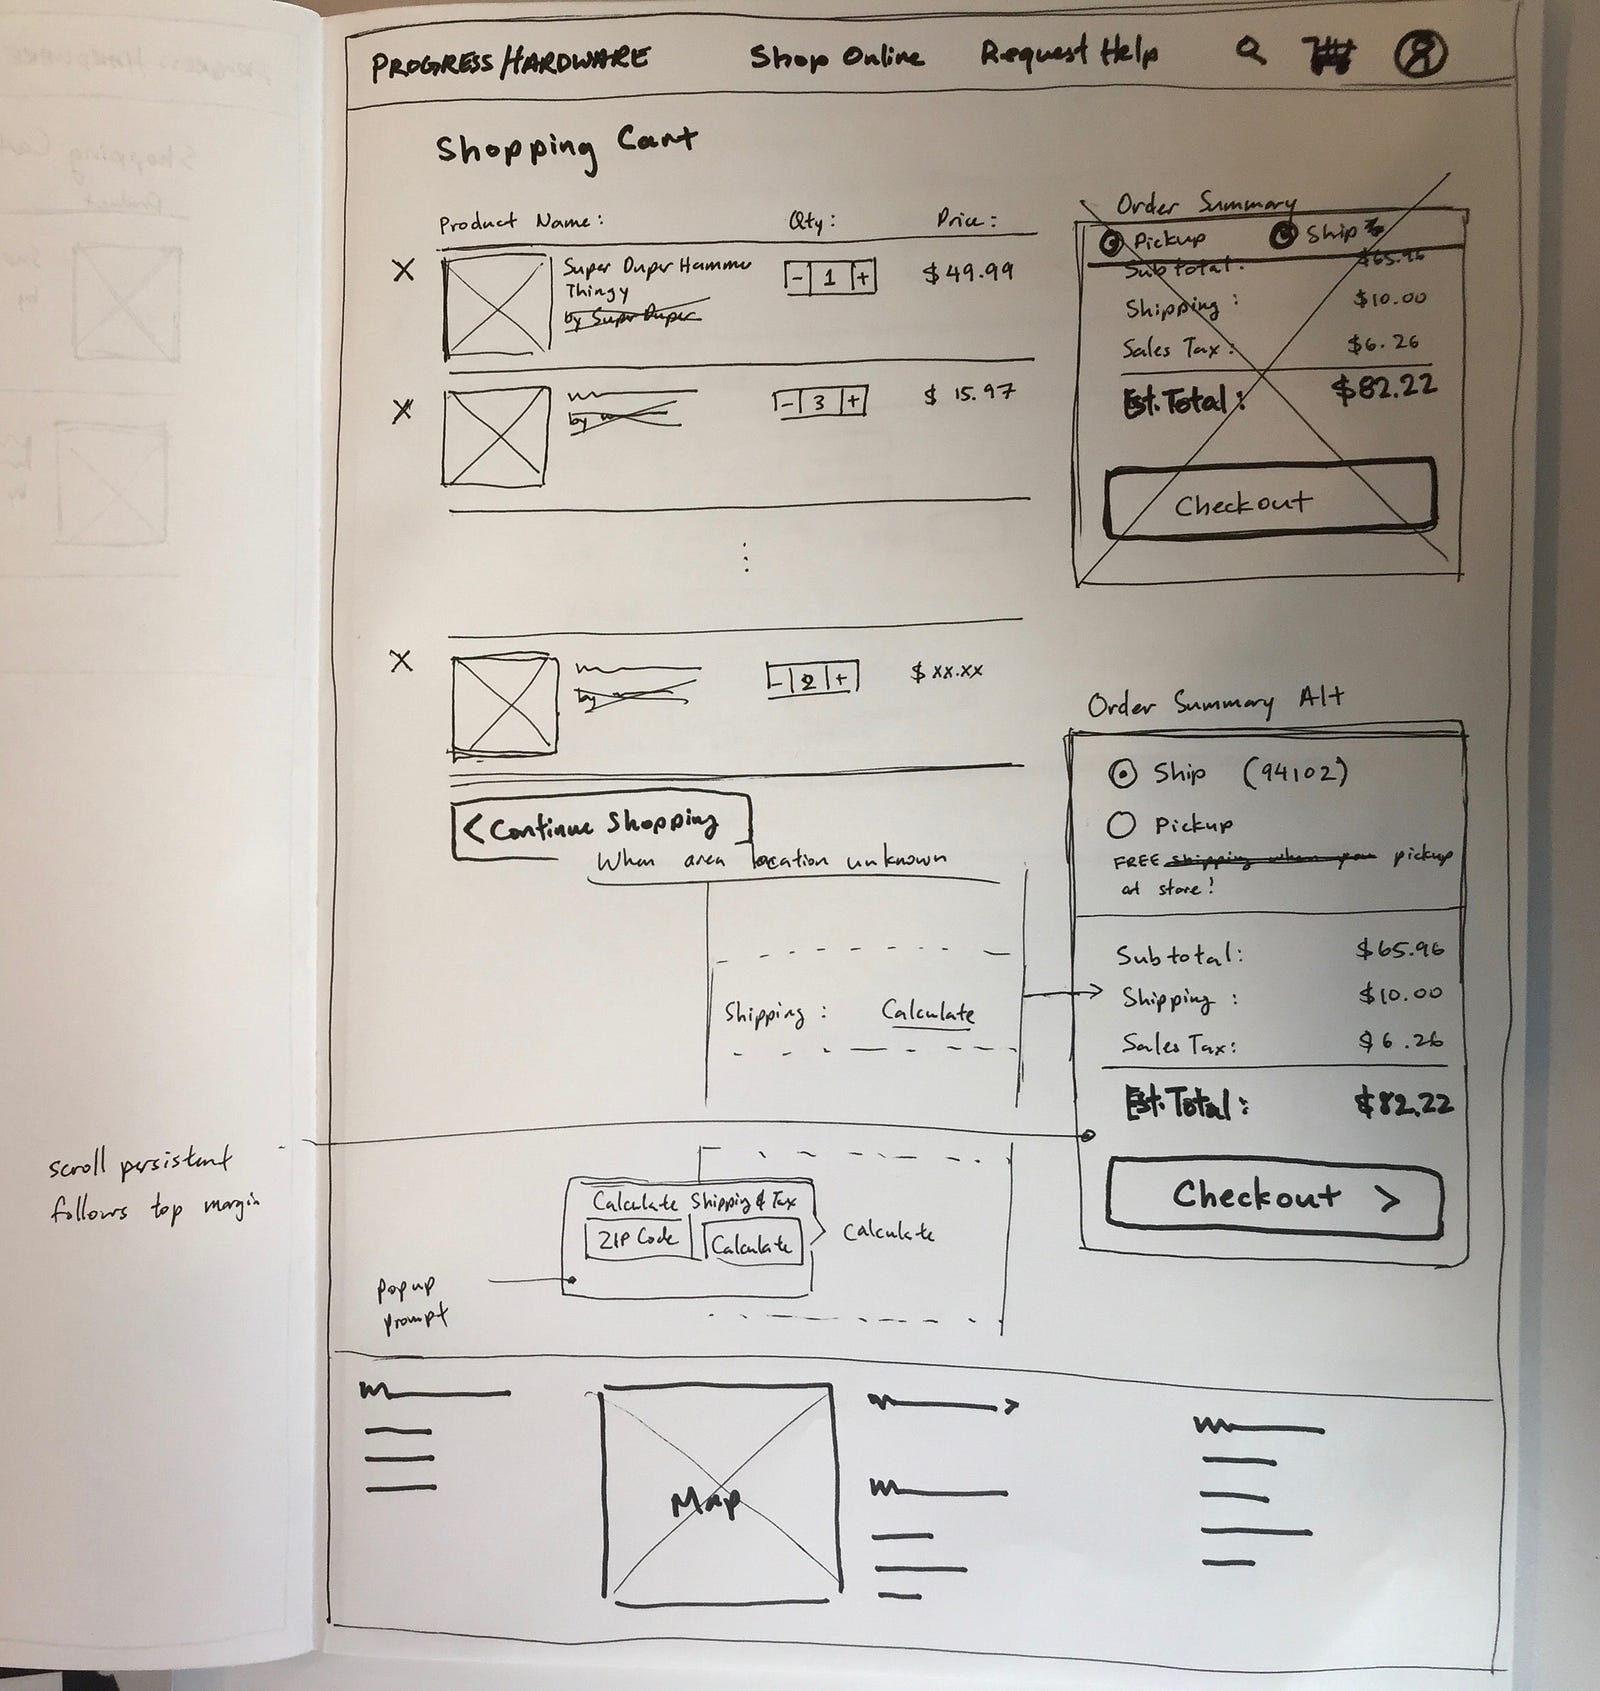 PROGRESS/HARDWARE Shop Online Request Help
Shopping Cart
Product Name: Qty: Price:
X Super Duper Hammer - 1 + $49.99
Thingy
by Super Duper
X by - 3 + $ 15.97
X by - 2 + $ xx.xx
< Continue Shopping
Order Summary
Pickup Ship
Subtotal: $65.96
Shipping: $10.00
Sales Tax: $6.26
Est. Total: $82.22
Checkout
Order Summary Alt
Ship (94102)
Pickup
FREE shipping when you pickup
at store!
Subtotal: $65.96
Shipping: $10.00
Sales Tax: $6.26
Est. Total: $82.22
Checkout >
When area location unknown
Shipping: Calculate
scroll persistent
follows top margin
Calculate Shipping & Tax
ZIP Code Calculate
Calculate
Popup
prompt
Map